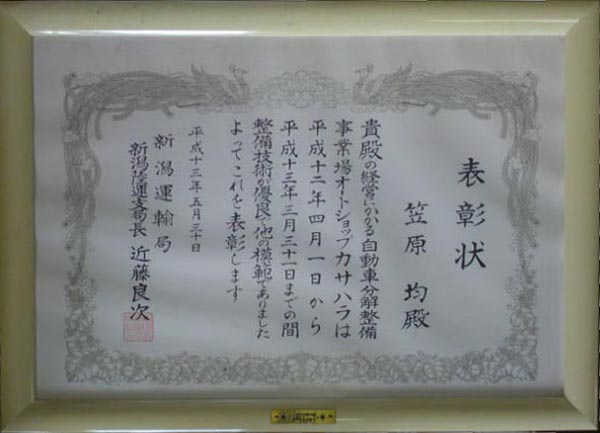 表彰状
笠原 均殿
貴殿の経営にかかる自動車分解整備
事業場オートショップカサハラは
平成十二年四月一日から
平成十三年三月三十一日までの間
整備技術が優良で他の模範でありました
よってこれを表彰します
平成十三年五月三十日
新潟運輸局
新潟陸運支局長 近藤良次